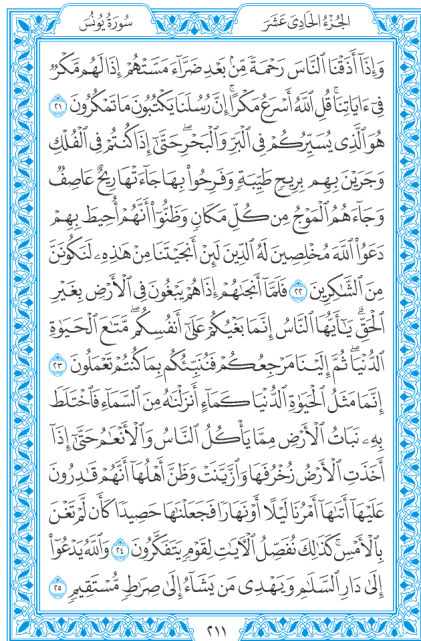 الجُزْءُ الحَادِي عَشَرَ
سُورَةُ يُونُسَ
وَإِذَآ أَذَقْنَا ٱلنَّاسَ رَحْمَةً مِّنۢ بَعْدِ ضَرَّآءَ مَسَّتْهُمْ إِذَا لَهُم مَّكْرٌ
فِىٓ ءَايَاتِنَا ۚ قُلِ ٱللَّهُ أَسْرَعُ مَكْرًا ۚ إِنَّ رُسُلَنَا يَكْتُبُونَ مَا تَمْكُرُونَ ٢١
هُوَ ٱلَّذِى يُسَيِّرُكُمْ فِى ٱلْبَرِّ وَٱلْبَحْرِ ۖ حَتَّىٰٓ إِذَا كُنتُمْ فِى ٱلْفُلْكِ
وَجَرَيْنَ بِهِم بِرِيحٍ طَيِّبَةٍ وَفَرِحُوا۟ بِهَا جَآءَتْهَا رِيحٌ عَاصِفٌ
وَجَآءَهُمُ ٱلْمَوْجُ مِن كُلِّ مَكَانٍ وَظَنُّوٓا۟ أَنَّهُمْ أُحِيطَ بِهِمْ ۙ
دَعَوُا۟ ٱللَّهَ مُخْلِصِينَ لَهُ ٱلدِّينَ لَئِنْ أَنجَيْتَنَا مِنْ هَٰذِهِۦ لَنَكُونَنَّ
مِنَ ٱلشَّٰكِرِينَ ٢٢ فَلَمَّآ أَنجَىٰهُمْ إِذَا هُمْ يَبْغُونَ فِى ٱلْأَرْضِ بِغَيْرِ
ٱلْحَقِّ ۗ يَٰٓأَيُّهَا ٱلنَّاسُ إِنَّمَا بَغْيُكُمْ عَلَىٰٓ أَنفُسِكُم ۖ مَّتَٰعَ ٱلْحَيَوٰةِ
ٱلدُّنْيَا ۖ ثُمَّ إِلَيْنَا مَرْجِعُكُمْ فَنُنَبِّئُكُم بِمَا كُنتُمْ تَعْمَلُونَ ٢٣
إِنَّمَا مَثَلُ ٱلْحَيَوٰةِ ٱلدُّنْيَا كَمَآءٍ أَنزَلْنَٰهُ مِنَ ٱلسَّمَآءِ فَٱخْتَلَطَ
بِهِۦ نَبَاتُ ٱلْأَرْضِ مِمَّا يَأْكُلُ ٱلنَّاسُ وَٱلْأَنْعَٰمُ حَتَّىٰٓ إِذَآ
أَخَذَتِ ٱلْأَرْضُ زُخْرُفَهَا وَٱزَّيَّنَتْ وَظَنَّ أَهْلُهَآ أَنَّهُمْ قَٰدِرُونَ
عَلَيْهَآ أَتَىٰهَآ أَمْرُنَا لَيْلًا أَوْ نَهَارًا فَجَعَلْنَٰهَا حَصِيدًا كَأَن لَّمْ تَغْنَ
بِٱلْأَمْسِ ۚ كَذَٰلِكَ نُفَصِّلُ ٱلْءَايَٰتِ لِقَوْمٍ يَتَفَكَّرُونَ ٢٤ وَٱللَّهُ يَدْعُوٓا۟
إِلَىٰ دَارِ ٱلسَّلَٰمِ وَيَهْدِى مَن يَشَآءُ إِلَىٰ صِرَٰطٍ مُّسْتَقِيمٍ ٢٥
٢١١